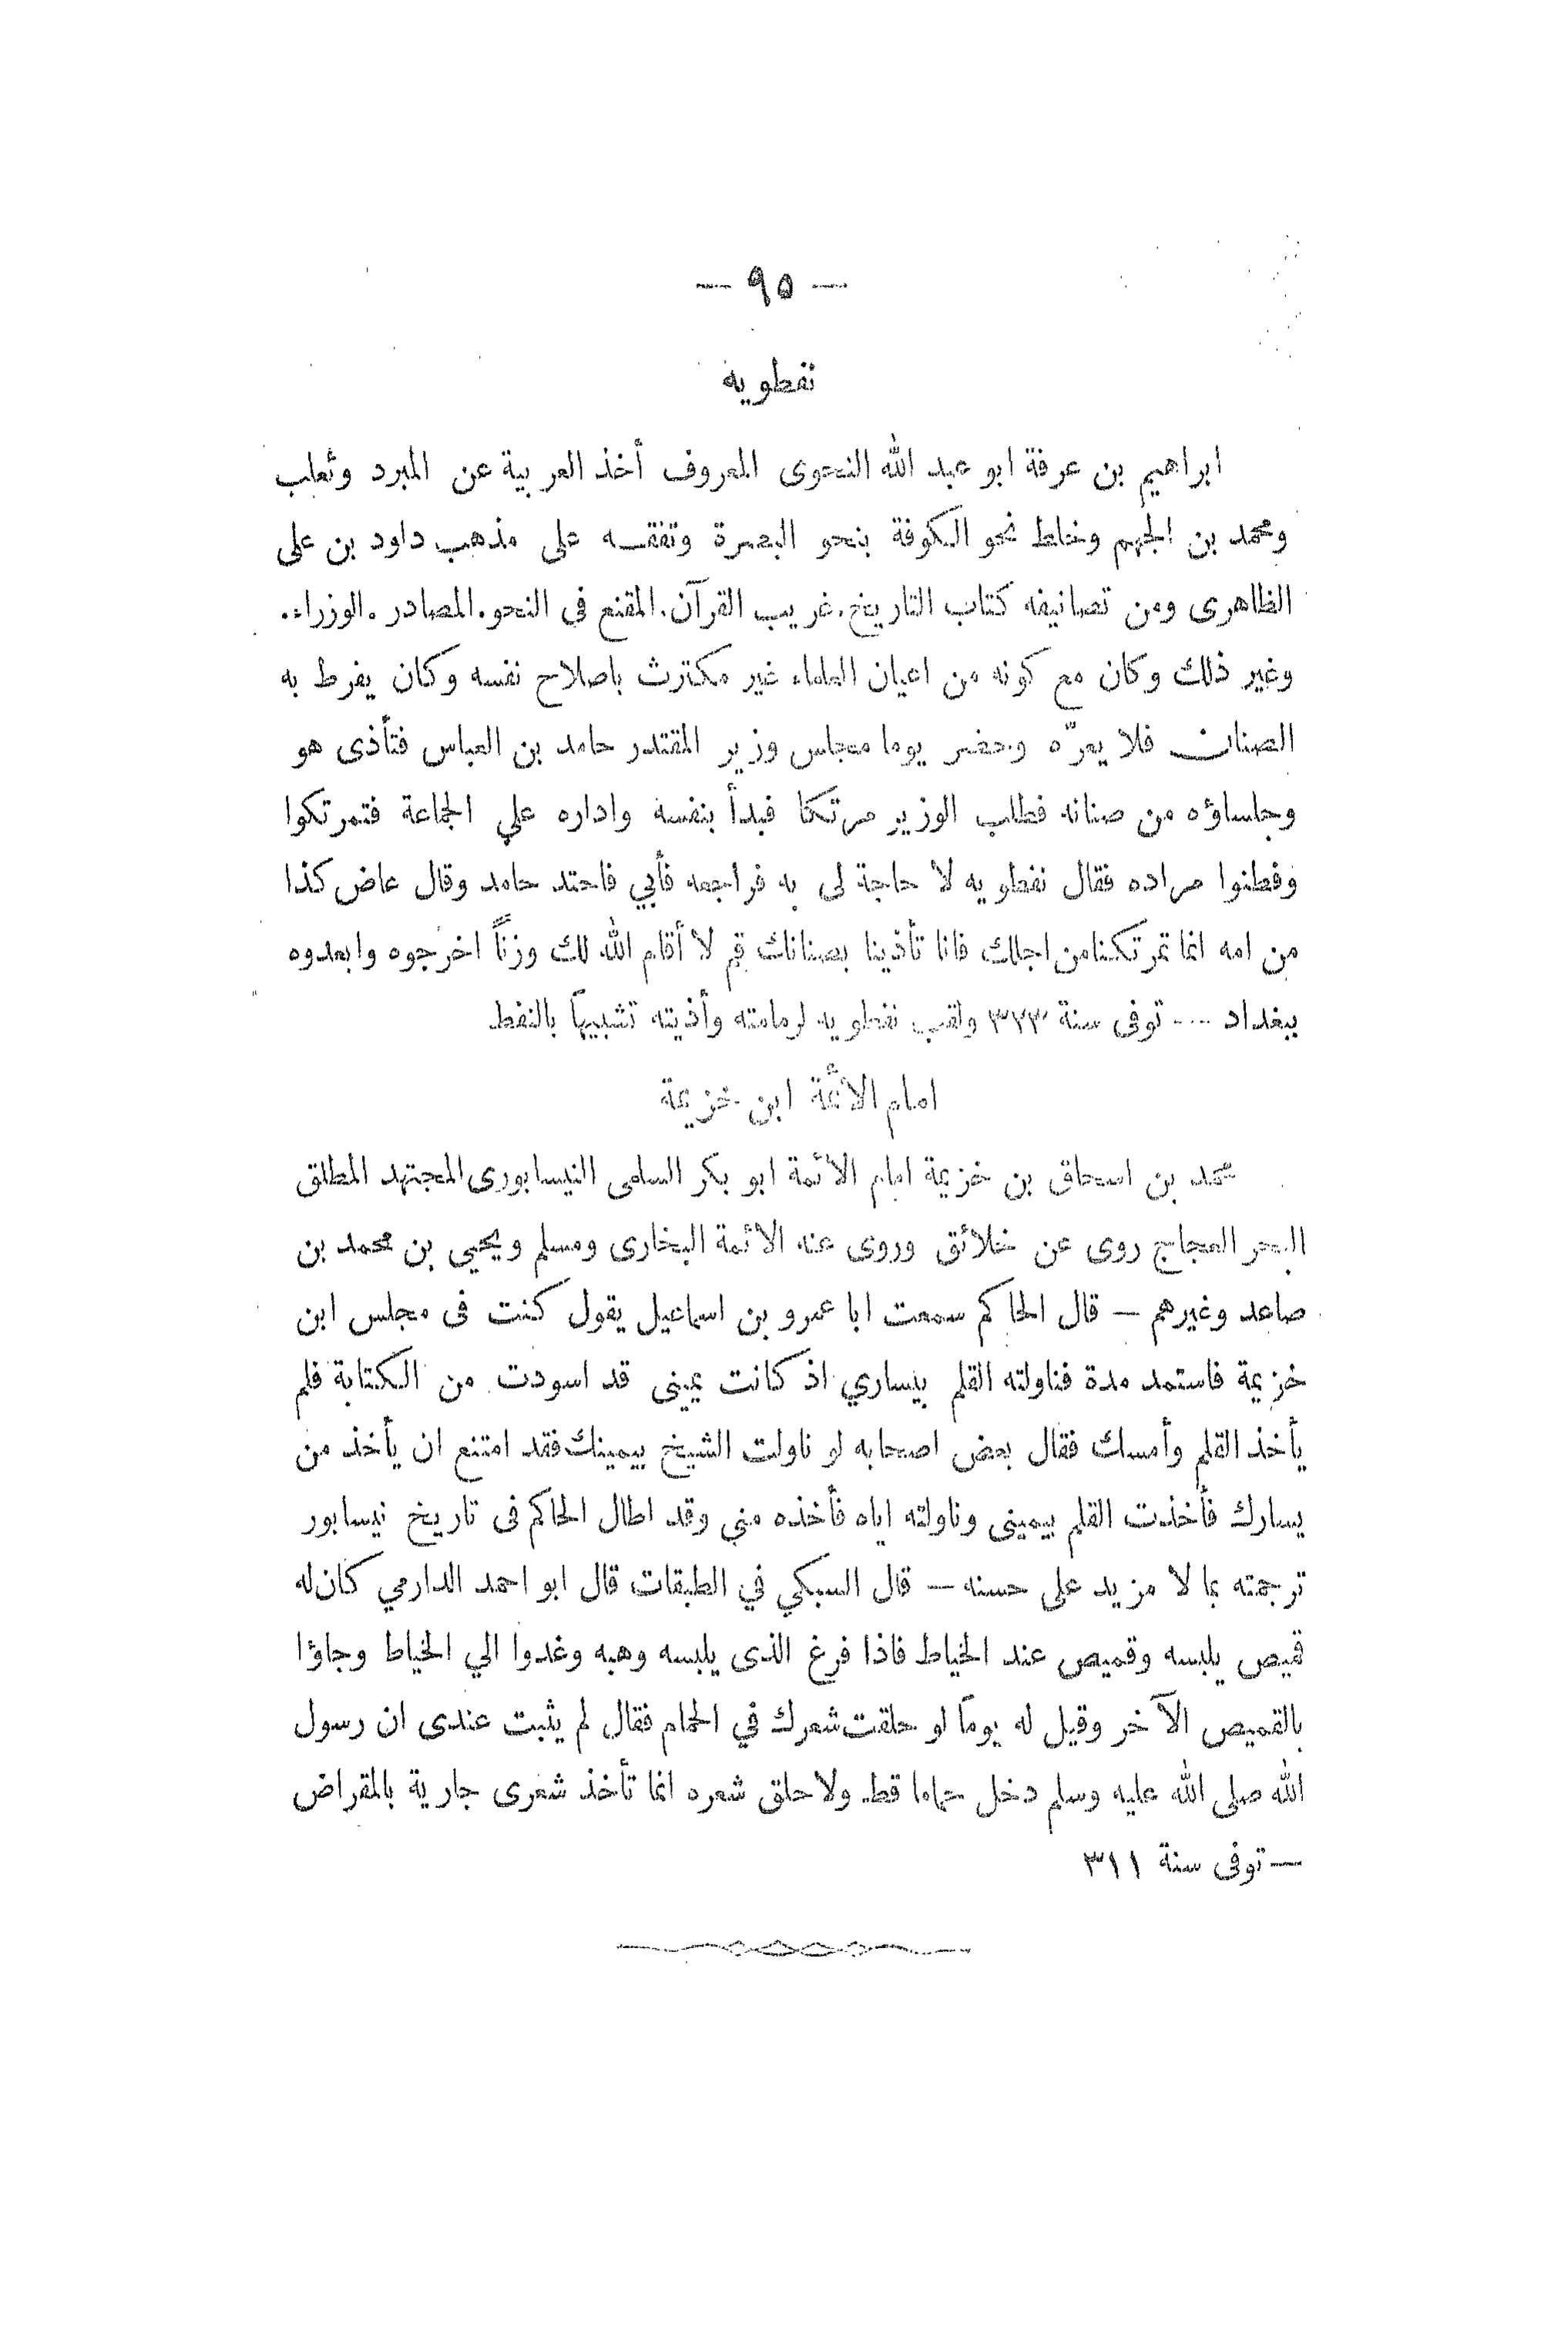 — ٩٥ —
نفطويه
ابراهيم بن عرفة ابو عبد الله النحوى المعروف أخذ العربية عن المبرد وثعلب
ومحمد بن الجهم وخلط نحو الكوفة بنحو البصرة وتفقه على مذهب داود بن على
الظاهرى ومن تصانيفه كتاب التاريخ. غريب القرآن. المقنع فى النحو. المصادر. الوزراء.
وغير ذلك وكان مع كونه من اعيان العلماء غير مكترث باصلاح نفسه وكان يفرط به
الصنان فلا يعرّه وحضر يوما مجلس وزير المقتدر حامد بن العباس فتأذى هو
وجلساؤه من صنانه فطلب الوزير مرتكا فبدأ بنفسه واداره علي الجماعة فتمرتكوا
وفطنوا مراده فقال نفطويه لا حاجة لى به فراجعه فأبي فاحتد حامد وقال عاض كذا
من امه انما تمرتكنا من اجلك فانا تأذينا بصنانك قم لا أقام الله لك وزناً اخرجوه وابعدوه
ببغداد — توفى سنة ٣٢٣ ولقب نفطويه لدمامته وأذيته تشبيهاً بالنفط
امام الأئمة ابن خزيمة
محمد بن اسحاق بن خزيمة امام الأئمة ابو بكر السلمى النيسابورى المجتهد المطلق
البحر العجاج روى عن خلائق وروى عنه الأئمة البخارى ومسلم ويحيي بن محمد بن
صاعد وغيرهم — قال الحاكم سمعت ابا عمرو بن اسماعيل يقول كنت فى مجلس ابن
خزيمة فاستمد مدة فناولته القلم بيساري اذ كانت يمينى قد اسودت من الكتابة فلم
يأخذ القلم وأمسك فقال بعض اصحابه لو ناولت الشيخ بيمينك فقد امتنع ان يأخذ من
يسارك فأخذت القلم بيمينى وناولته اياه فأخذه مني وقد اطال الحاكم فى تاريخ نيسابور
ترجمته بما لا مزيد على حسنه — قال السبكي في الطبقات قال ابو احمد الدارمي كان له
قميص يلبسه وقميص عند الخياط فاذا فرغ الذى يلبسه وهبه وغدوا الي الخياط وجاؤا
بالقميص الآخر وقيل له يوماً لو حلقت شعرك في الحمام فقال لم يثبت عندى ان رسول
الله صلى الله عليه وسلم دخل حماما قط ولا حلق شعره انما تأخذ شعرى جارية بالمقراض
— توفى سنة ٣١١